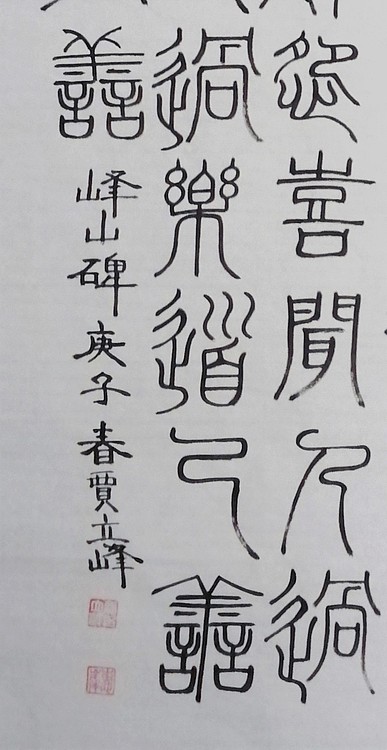 喜聞人過
過樂道己善
善
峰山碑庚子春賈立峰